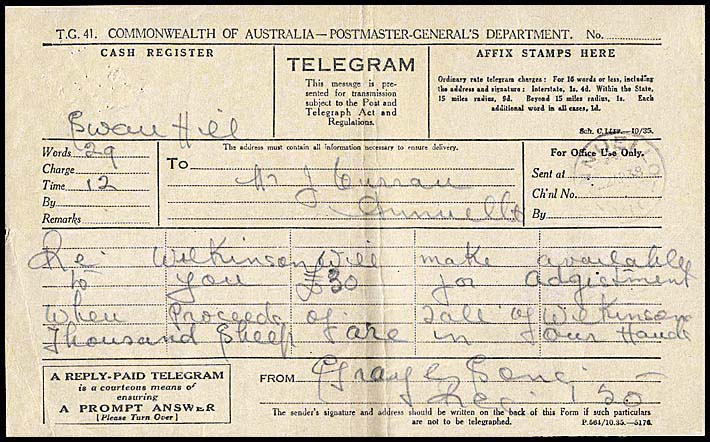 T.G. 41. COMMONWEALTH OF AUSTRALIA—POSTMASTER-GENERAL'S DEPARTMENT. No.
CASH REGISTER
TELEGRAM
This message is pre-
sented for transmission
subject to the Post and
Telegraph Act and
Regulations.
AFFIX STAMPS HERE
Ordinary rate telegram charges: For 16 words or less, including
the address and signature: Interstate, 1s. 4d. Within the State,
15 miles radius, 9d. Beyond 15 miles radius, 1s. Each
additional word in all cases, 1d.
Sch. C.—10/35.
Swan Hill
Words 29
Charge
Time 12
By
Remarks
The address must contain all information necessary to ensure delivery.
To Mr J Curran
Annuello
For Office Use Only.
Sent at
Ch'nl No.
By
ANNUELLO
Re: Wilkinson Will make available
to you £30 for adgistment
When Proceeds of Sale of Wilkinson
Thousand Sheep are in our Hands
A REPLY-PAID TELEGRAM
is a courteous means of
ensuring
A PROMPT ANSWER
[Please Turn Over]
FROM
The sender's signature and address should be written on the back of this Form if such particulars
are not to be telegraphed.
P.561/10.35.—5176.